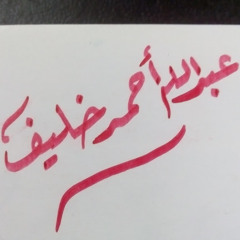 عبدالله أحمد خليف